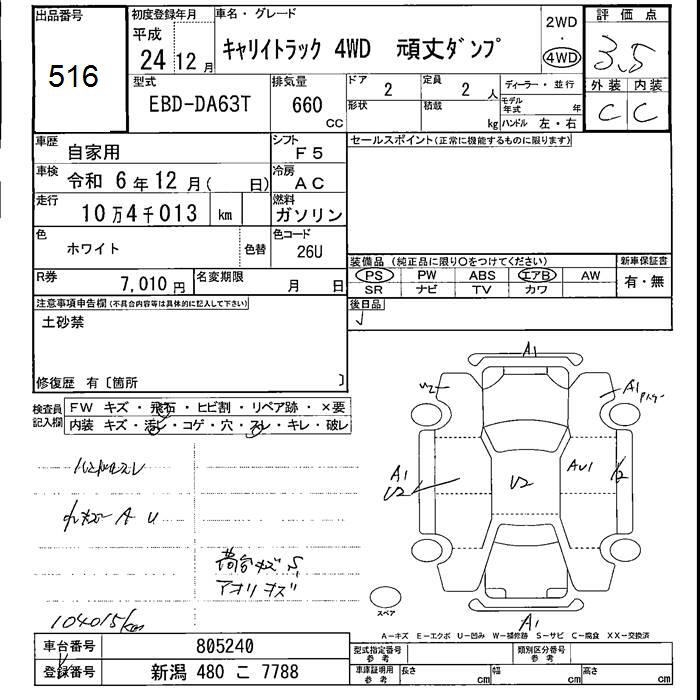 出品番号
516
初度登録年月
平成
24 12 月
車名・グレード
キャリイトラック 4WD 頑丈ダンプ
2WD
・
4WD
評価点
3.5
外装 内装
C C
型式
EBD-DA63T
排気量
660
CC
ドア 2
形状
定員 2 人
積載 kg
ディーラー・並行
モデル年式 年
ハンドル 左・右
車歴 自家用
シフト F5
セールスポイント(正常に機能するものに限ります)
車検 令和 6 年 12 月( 日)
冷房 AC
走行 10 万 4 千 013 km
燃料 ガソリン
色 ホワイト
色替
色コード 26U
装備品 (純正品に限り〇をつけてください)
新車保証書
PS PW ABS エアB AW
有・無
SR ナビ TV カワ
R券 7,010 円
名変期限 月 日
後日品
注意事項申告欄(不具合内容等は具体的に記入して下さい)
土砂禁
修復歴 有〔箇所 〕
検査員記入欄
FW キズ・飛石・ヒビ割・リペア跡・×要
内装 キズ・汚レ・コゲ・穴・スレ・キレ・破レ
ハンドルスレ
A U
荷台キズ S
アオリキズ
104015km
A1
A1
A1
U2
U2
AU1
A1
スペア
A-キズ E-エクボ U-凹み W-補修跡 S-サビ C-腐食 XX-交換済
車台番号 805240
型式指定番号 参考
類別区分番号 参考
登録番号 新潟 480 こ 7788
車庫証明用 参考
長さ cm
幅 cm
高さ cm